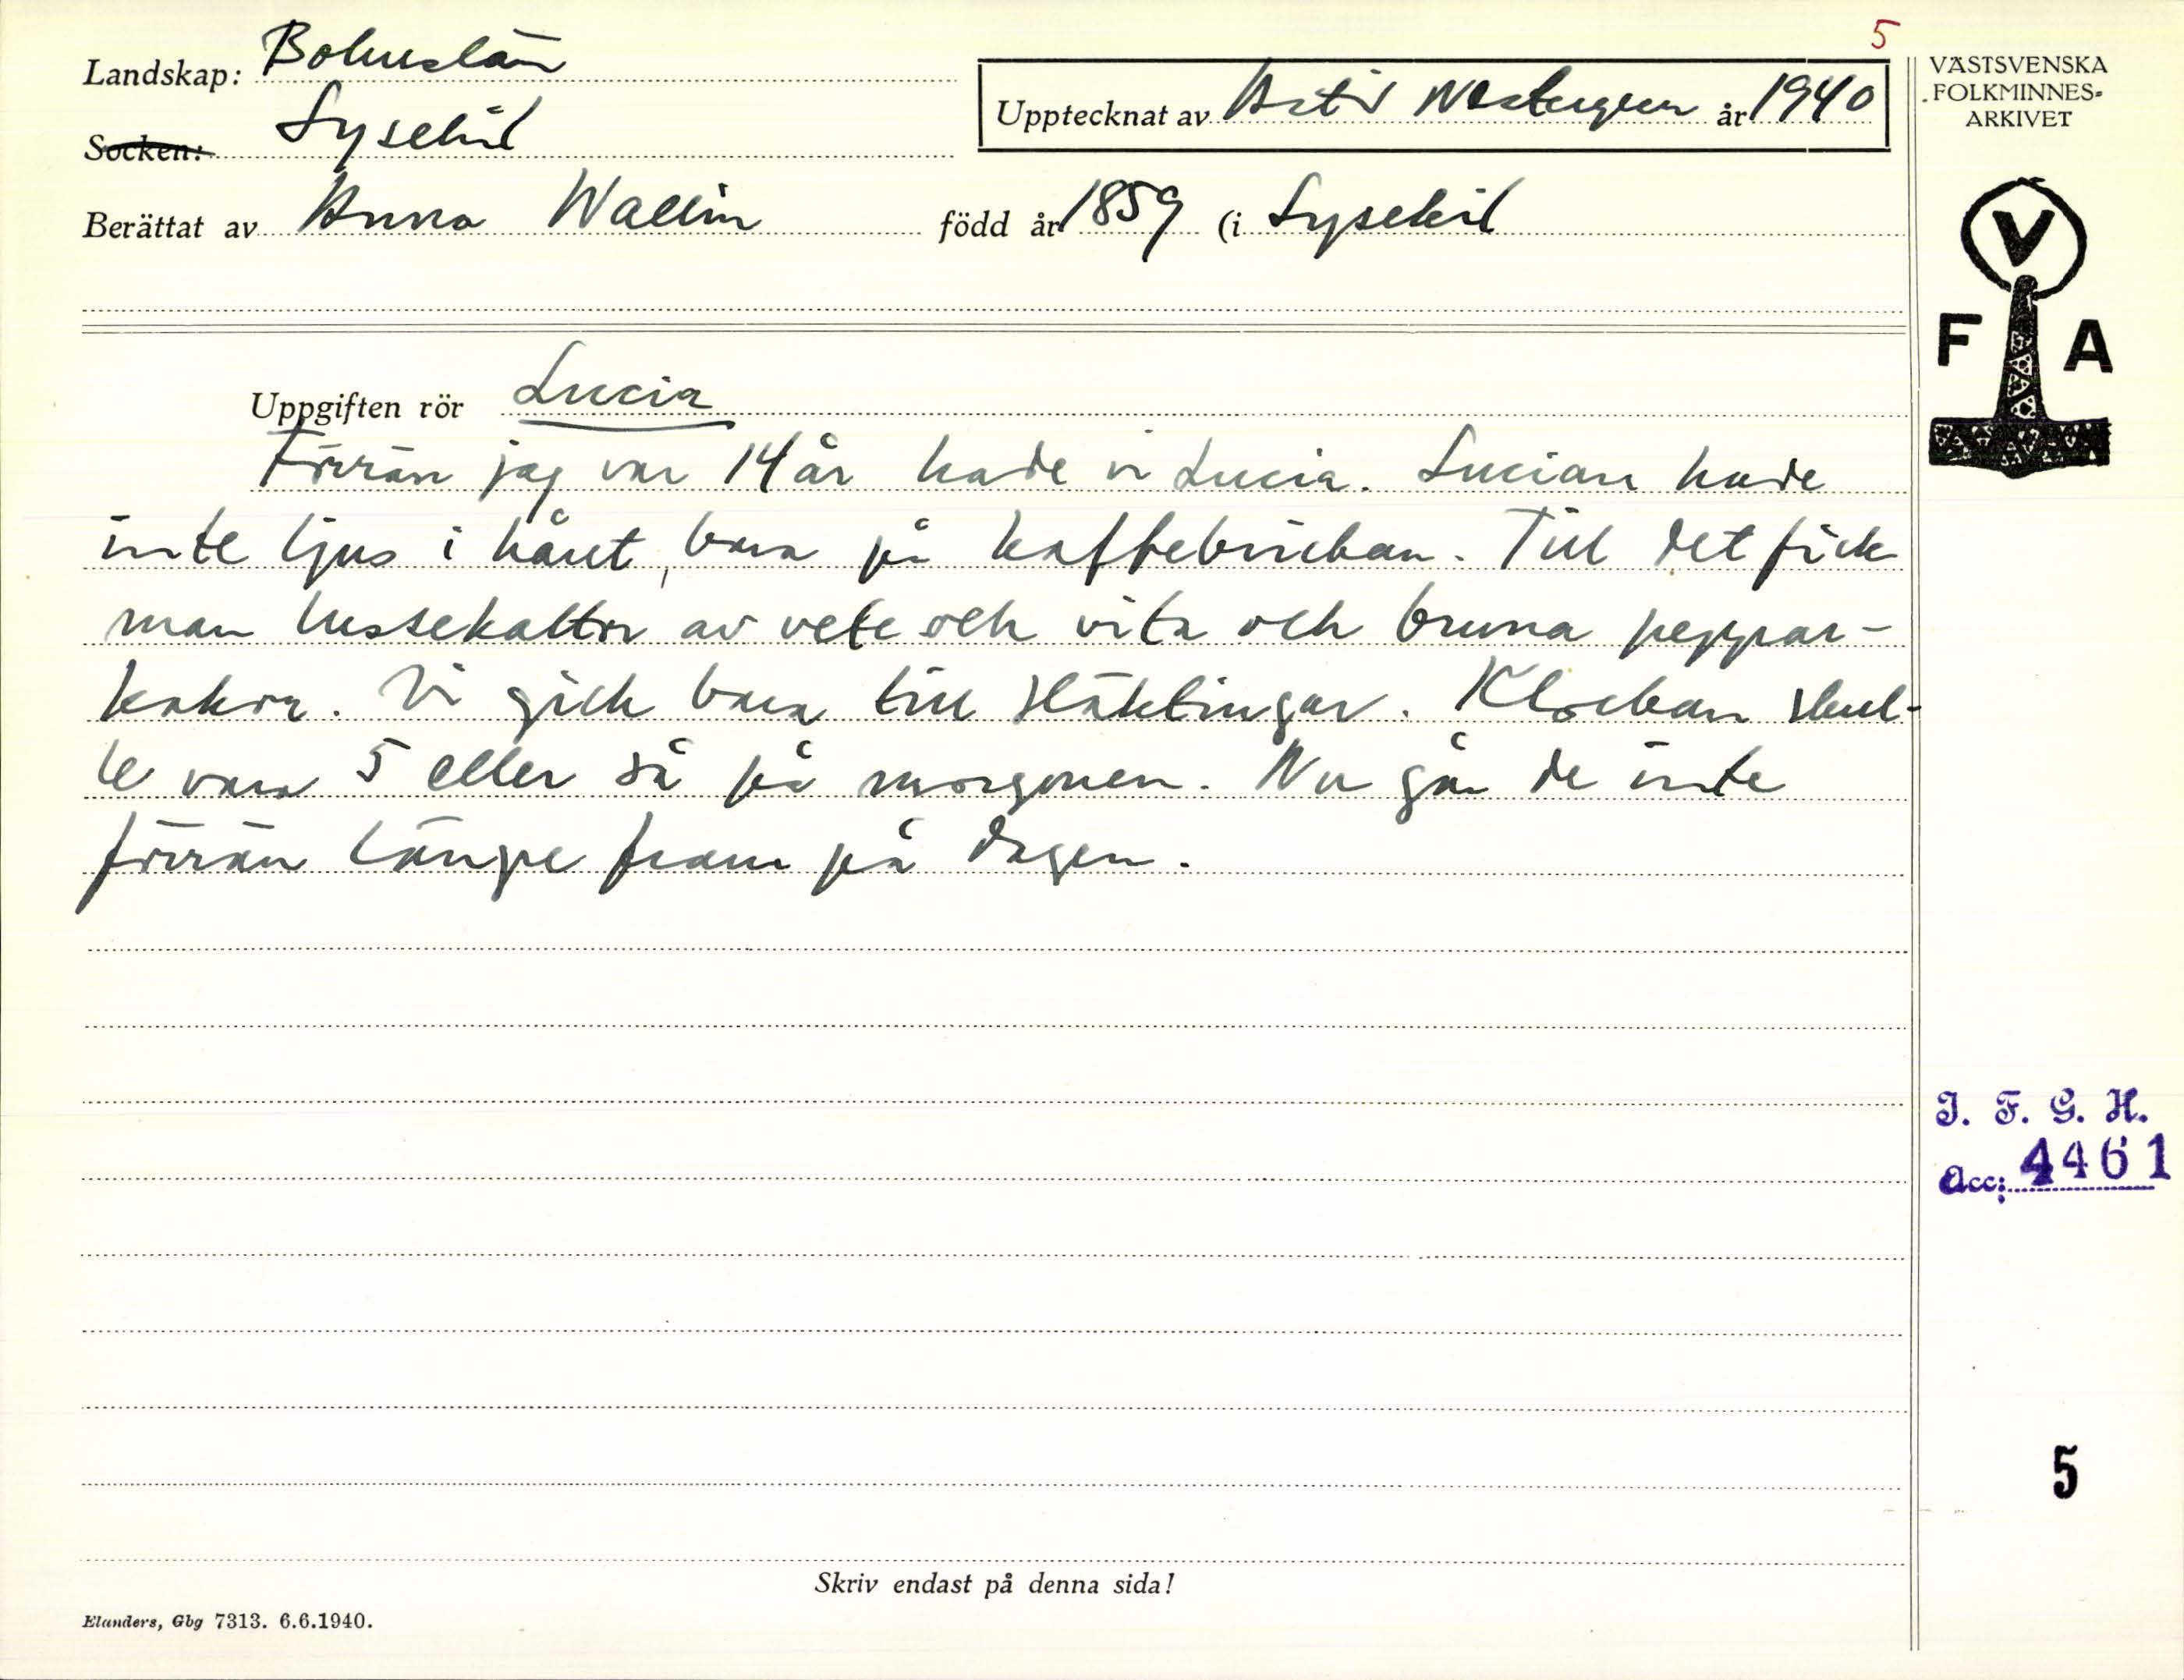 5
Landskap: Bohuslän
Upptecknat av Astrid Westergren år 1940
Socken: Lysekil
Berättat av Anna Wallin född år 1859 (i Lysekil
Uppgiften rör Lucia
Förrän jag var 14 år hade vi Lucia. Lucian hade
inte ljus i håret, bara på kaffebrickan. Till det fick
man lussekattor av vete och vita och bruna peppar-
kakor. Vi gick bara till släktingar. Klockan skul-
le vara 5 eller så på morgonen. Nu går de inte
förrän länge fram på dagen.
Skriv endast på denna sida!
Elanders, Gbg 7313. 6.6.1940.
VÄSTSVENSKA
FOLKMINNES-
ARKIVET
V
F A
I. F. G. H.
Acc: 4461
5